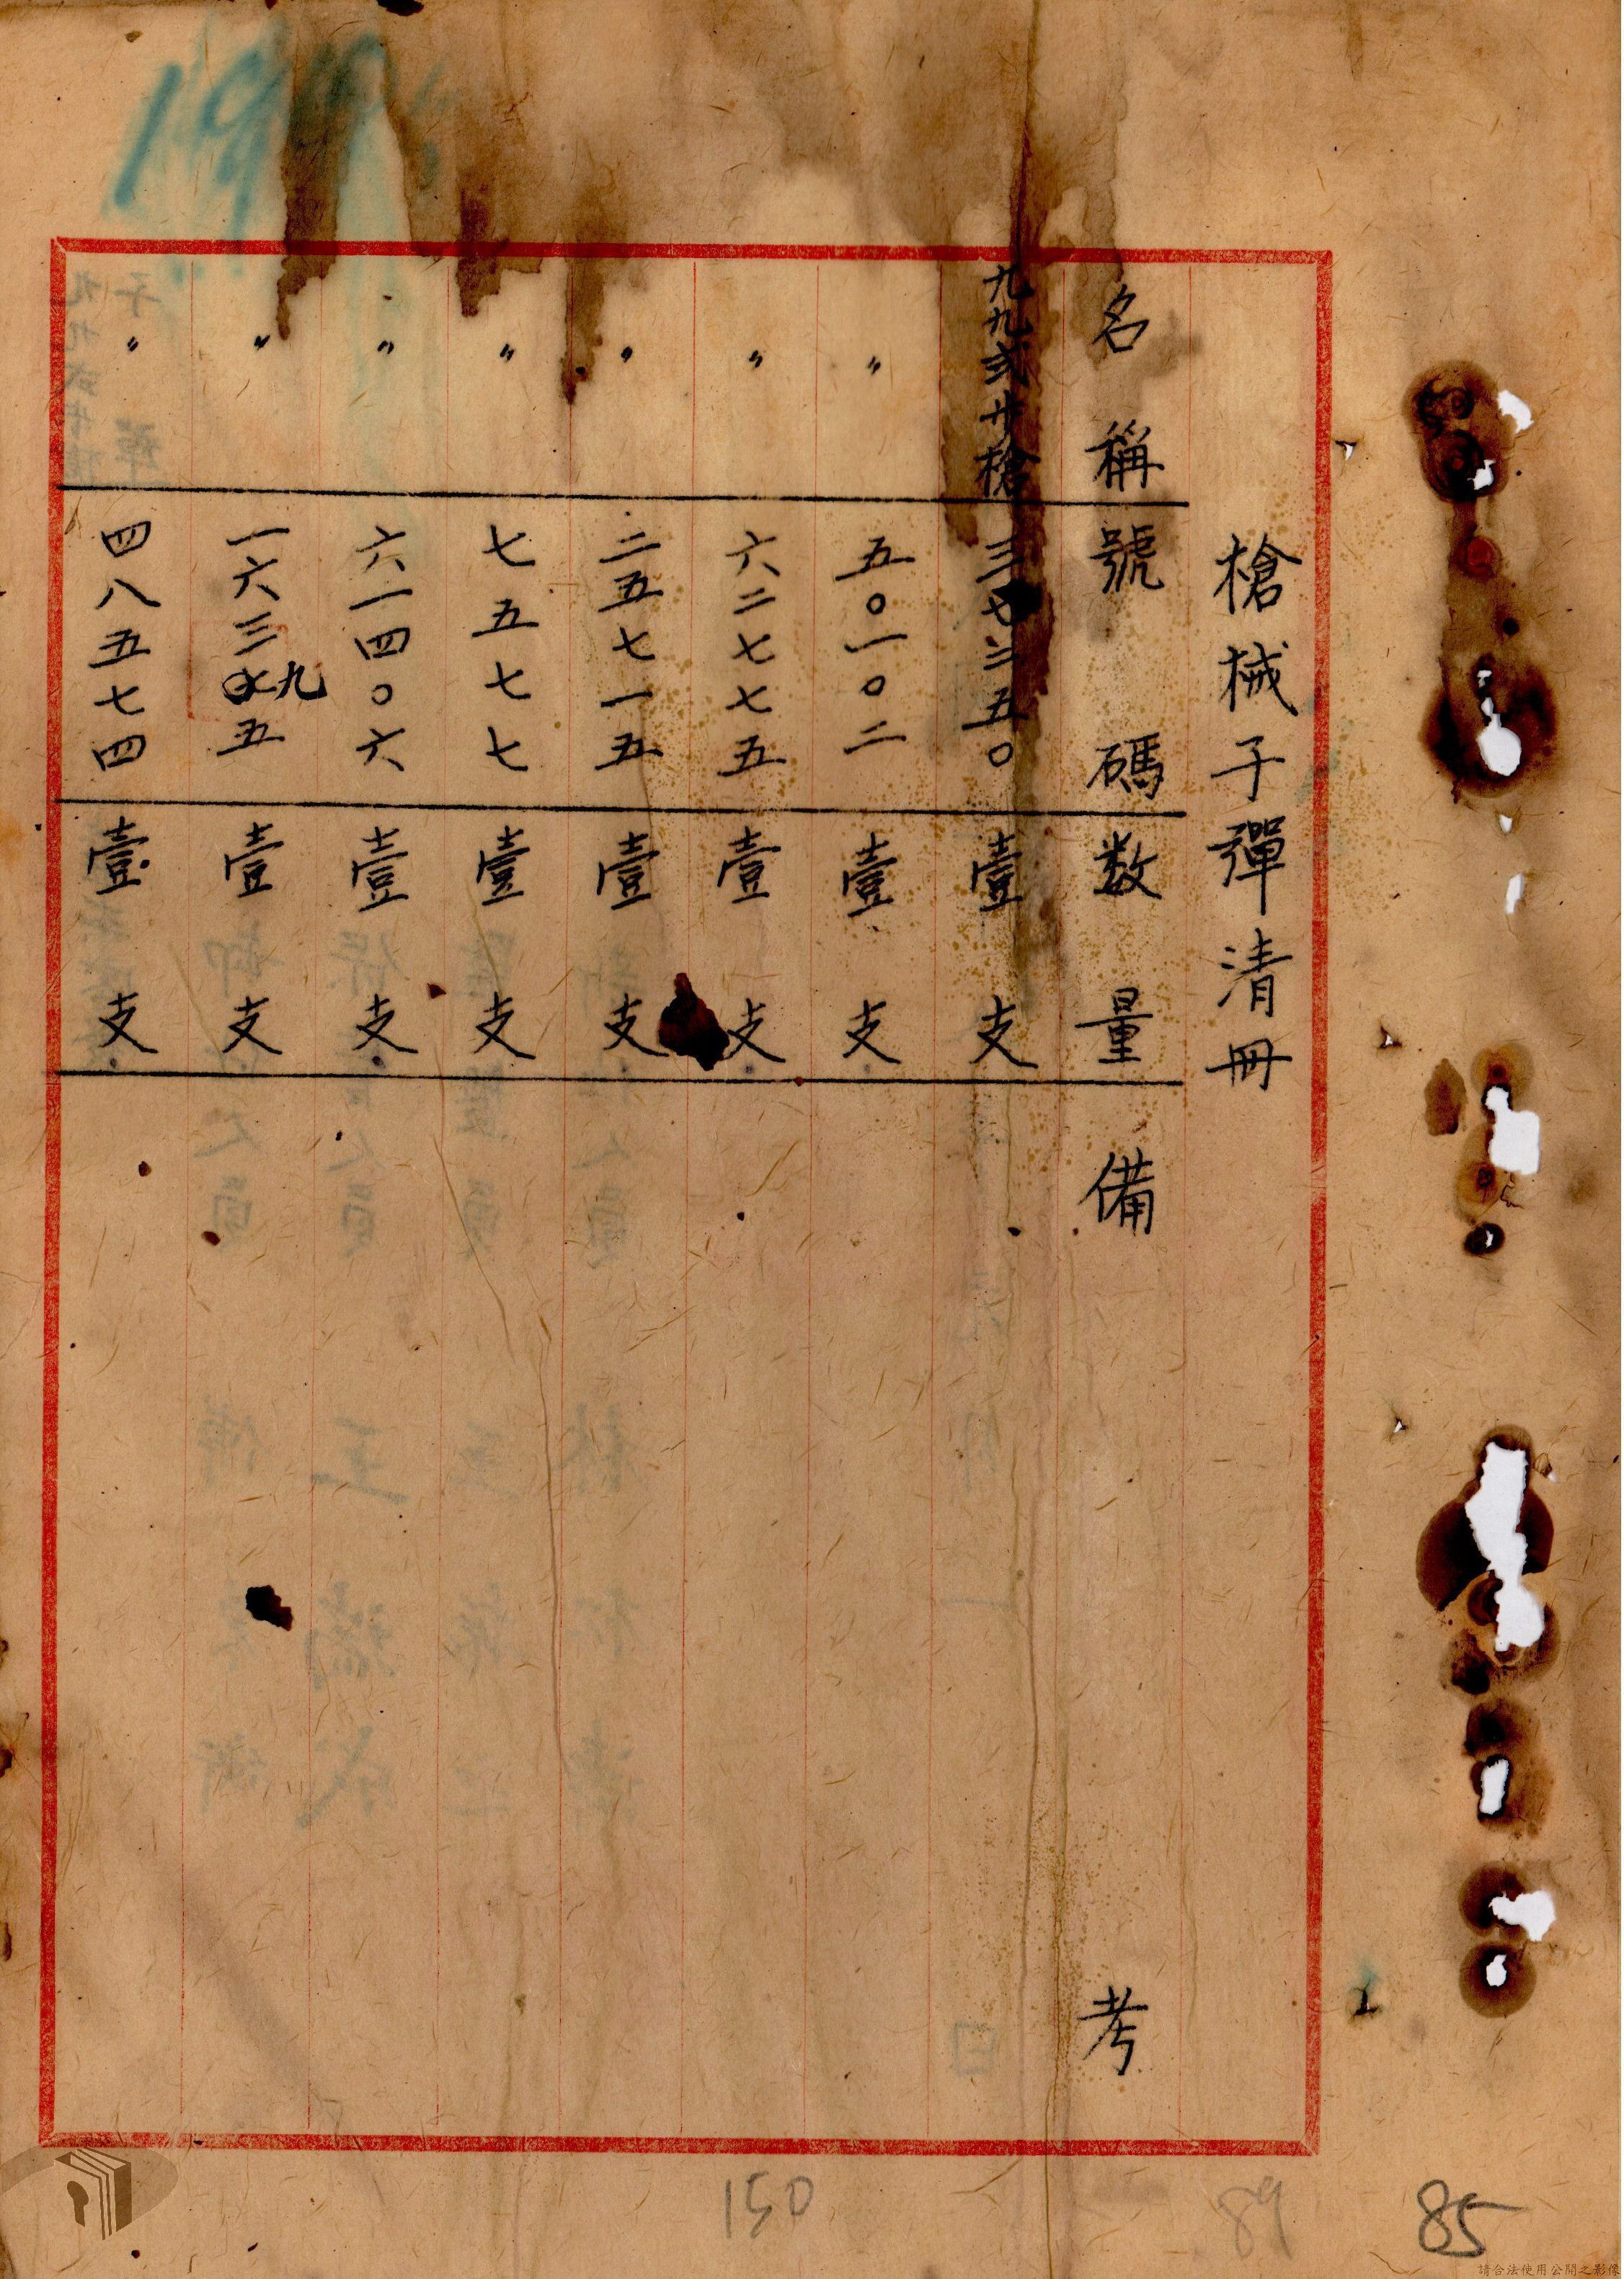 槍械子彈清冊
名稱 號碼 数量 備考
九九式步槍 三七二五〇 壹支
〃 五〇一〇二 壹支
〃 六二七七五 壹支
〃 二五七一五 壹支
〃 七五七七 壹支
〃 六一四〇六 壹支
〃 一六三九五 壹支
〃 四八五七四 壹支
150
89
85
請合法使用公開之影像